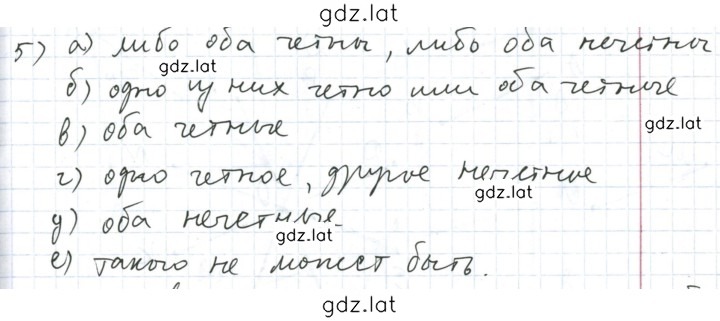 gdz.lat
5) а) либо оба четны, либо оба нечетны
gdz.lat
б) одно из них четно или оба четные
в) оба четные
gdz.lat
г) одно четное, другое нечетное
gdz.lat
д) оба нечетные
gdz.lat
е) такого не может быть.
gdz.lat